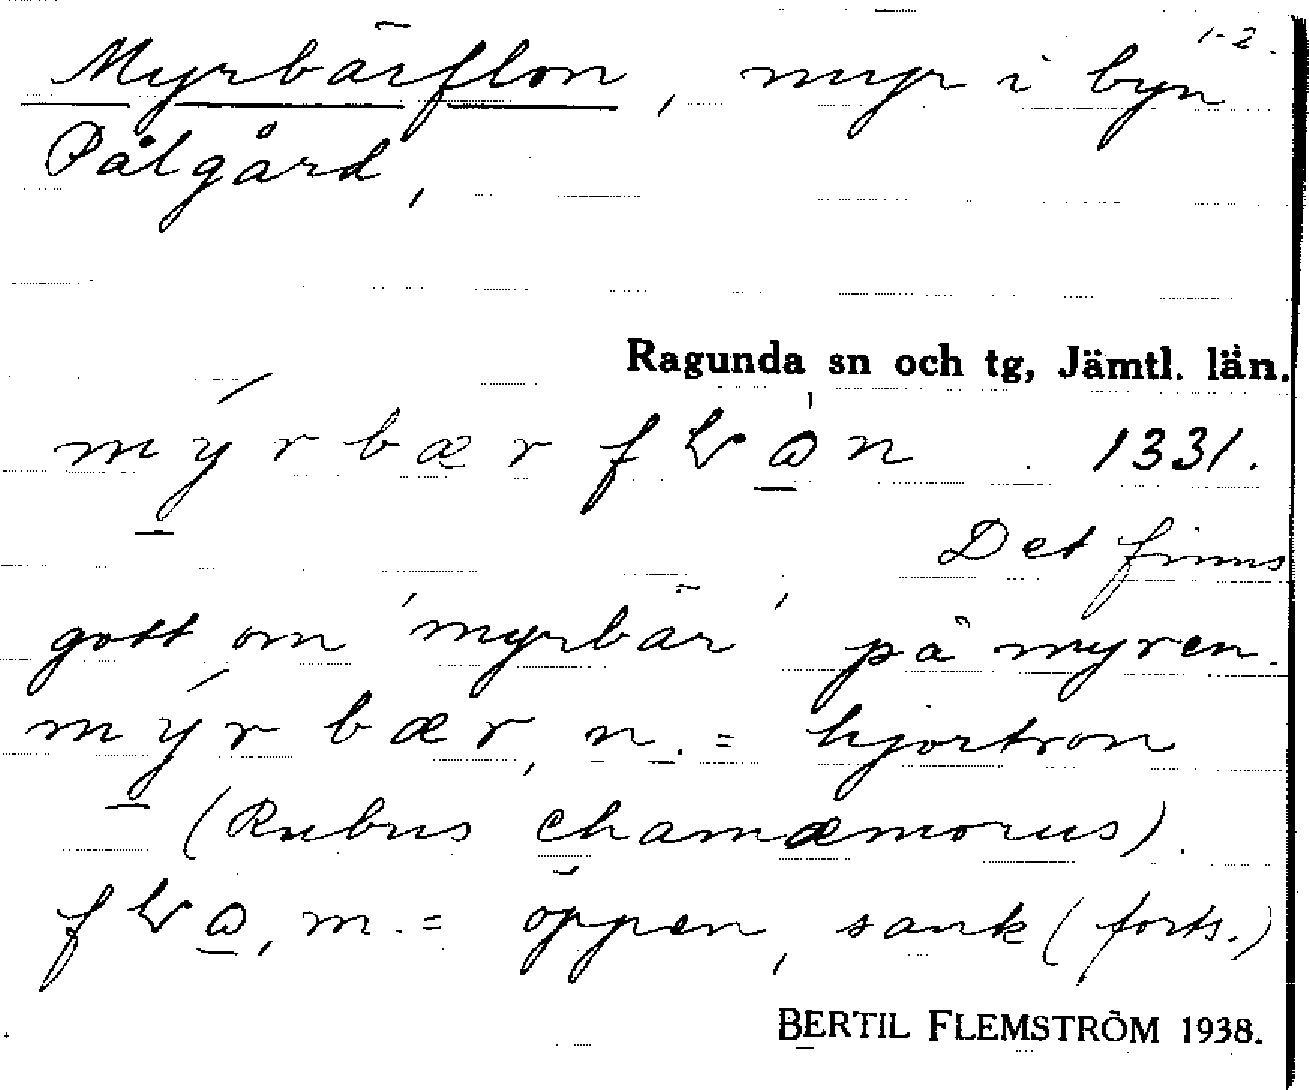 1-2.
Myrbärflon, myr i byn
Pålgård,
Ragunda sn och tg, Jämtl. län.
1331.
Det finns
gott om 'myrbär' på myren.
mýrbær, n. = hjortron
(Rubus chamæmorus).
m. = öppen, sank (forts.)
BERTIL FLEMSTRÖM 1938.